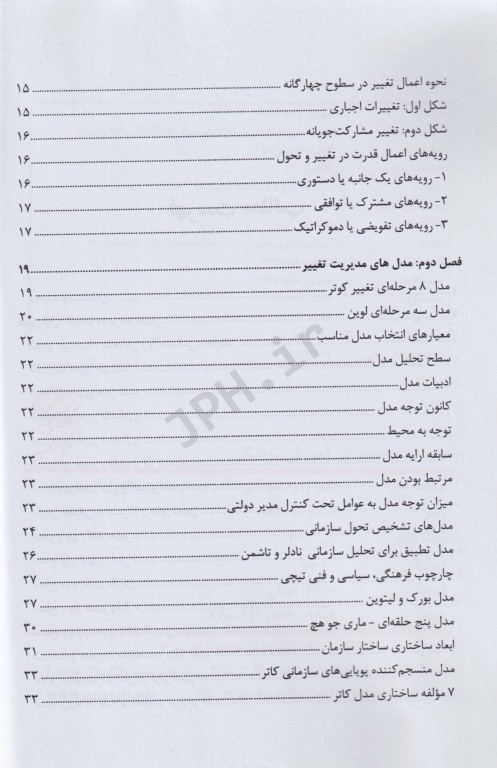 نحوه اعمال تغییر در سطوح چهارگانه ........ ۱۵
شکل اول: تغییرات اجباری ........ ۱۵
شکل دوم: تغییر مشارکت‌جویانه ........ ۱۶
رویه‌های اعمال قدرت در تغییر و تحول ........ ۱۶
۱- رویه‌های یک جانبه یا دستوری ........ ۱۶
۲- رویه‌های مشترک یا توافقی ........ ۱۷
۳- رویه‌های تفویضی یا دموکراتیک ........ ۱۷
فصل دوم: مدل های مدیریت تغییر ........ ۱۹
مدل ۸ مرحله‌ای تغییر کوتر ........ ۱۹
مدل سه مرحله‌ای لوین ........ ۲۰
معیارهای انتخاب مدل مناسب ........ ۲۲
سطح تحلیل مدل ........ ۲۲
ادبیات مدل ........ ۲۲
کانون توجه مدل ........ ۲۲
توجه به محیط ........ ۲۲
سابقه ارایه مدل ........ ۲۳
مرتبط بودن مدل ........ ۲۳
میزان توجه مدل به عوامل تحت کنترل مدیر دولتی ........ ۲۳
مدل‌های تشخیص تحول سازمانی ........ ۲۴
مدل تطبیق برای تحلیل سازمانی نادلر و تاشمن ........ ۲۶
چارچوب فرهنگی، سیاسی و فنی تیچی ........ ۲۷
مدل بورک و لیتوین ........ ۲۷
مدل پنج حلقه‌ای - ماری جو هچ ........ ۳۰
ابعاد ساختاری ساختار سازمان ........ ۳۱
مدل منسجم‌کننده پویایی‌های سازمانی کاتر ........ ۳۳
۷ مؤلفه ساختاری مدل کاتر ........ ۳۳
JPH.ir